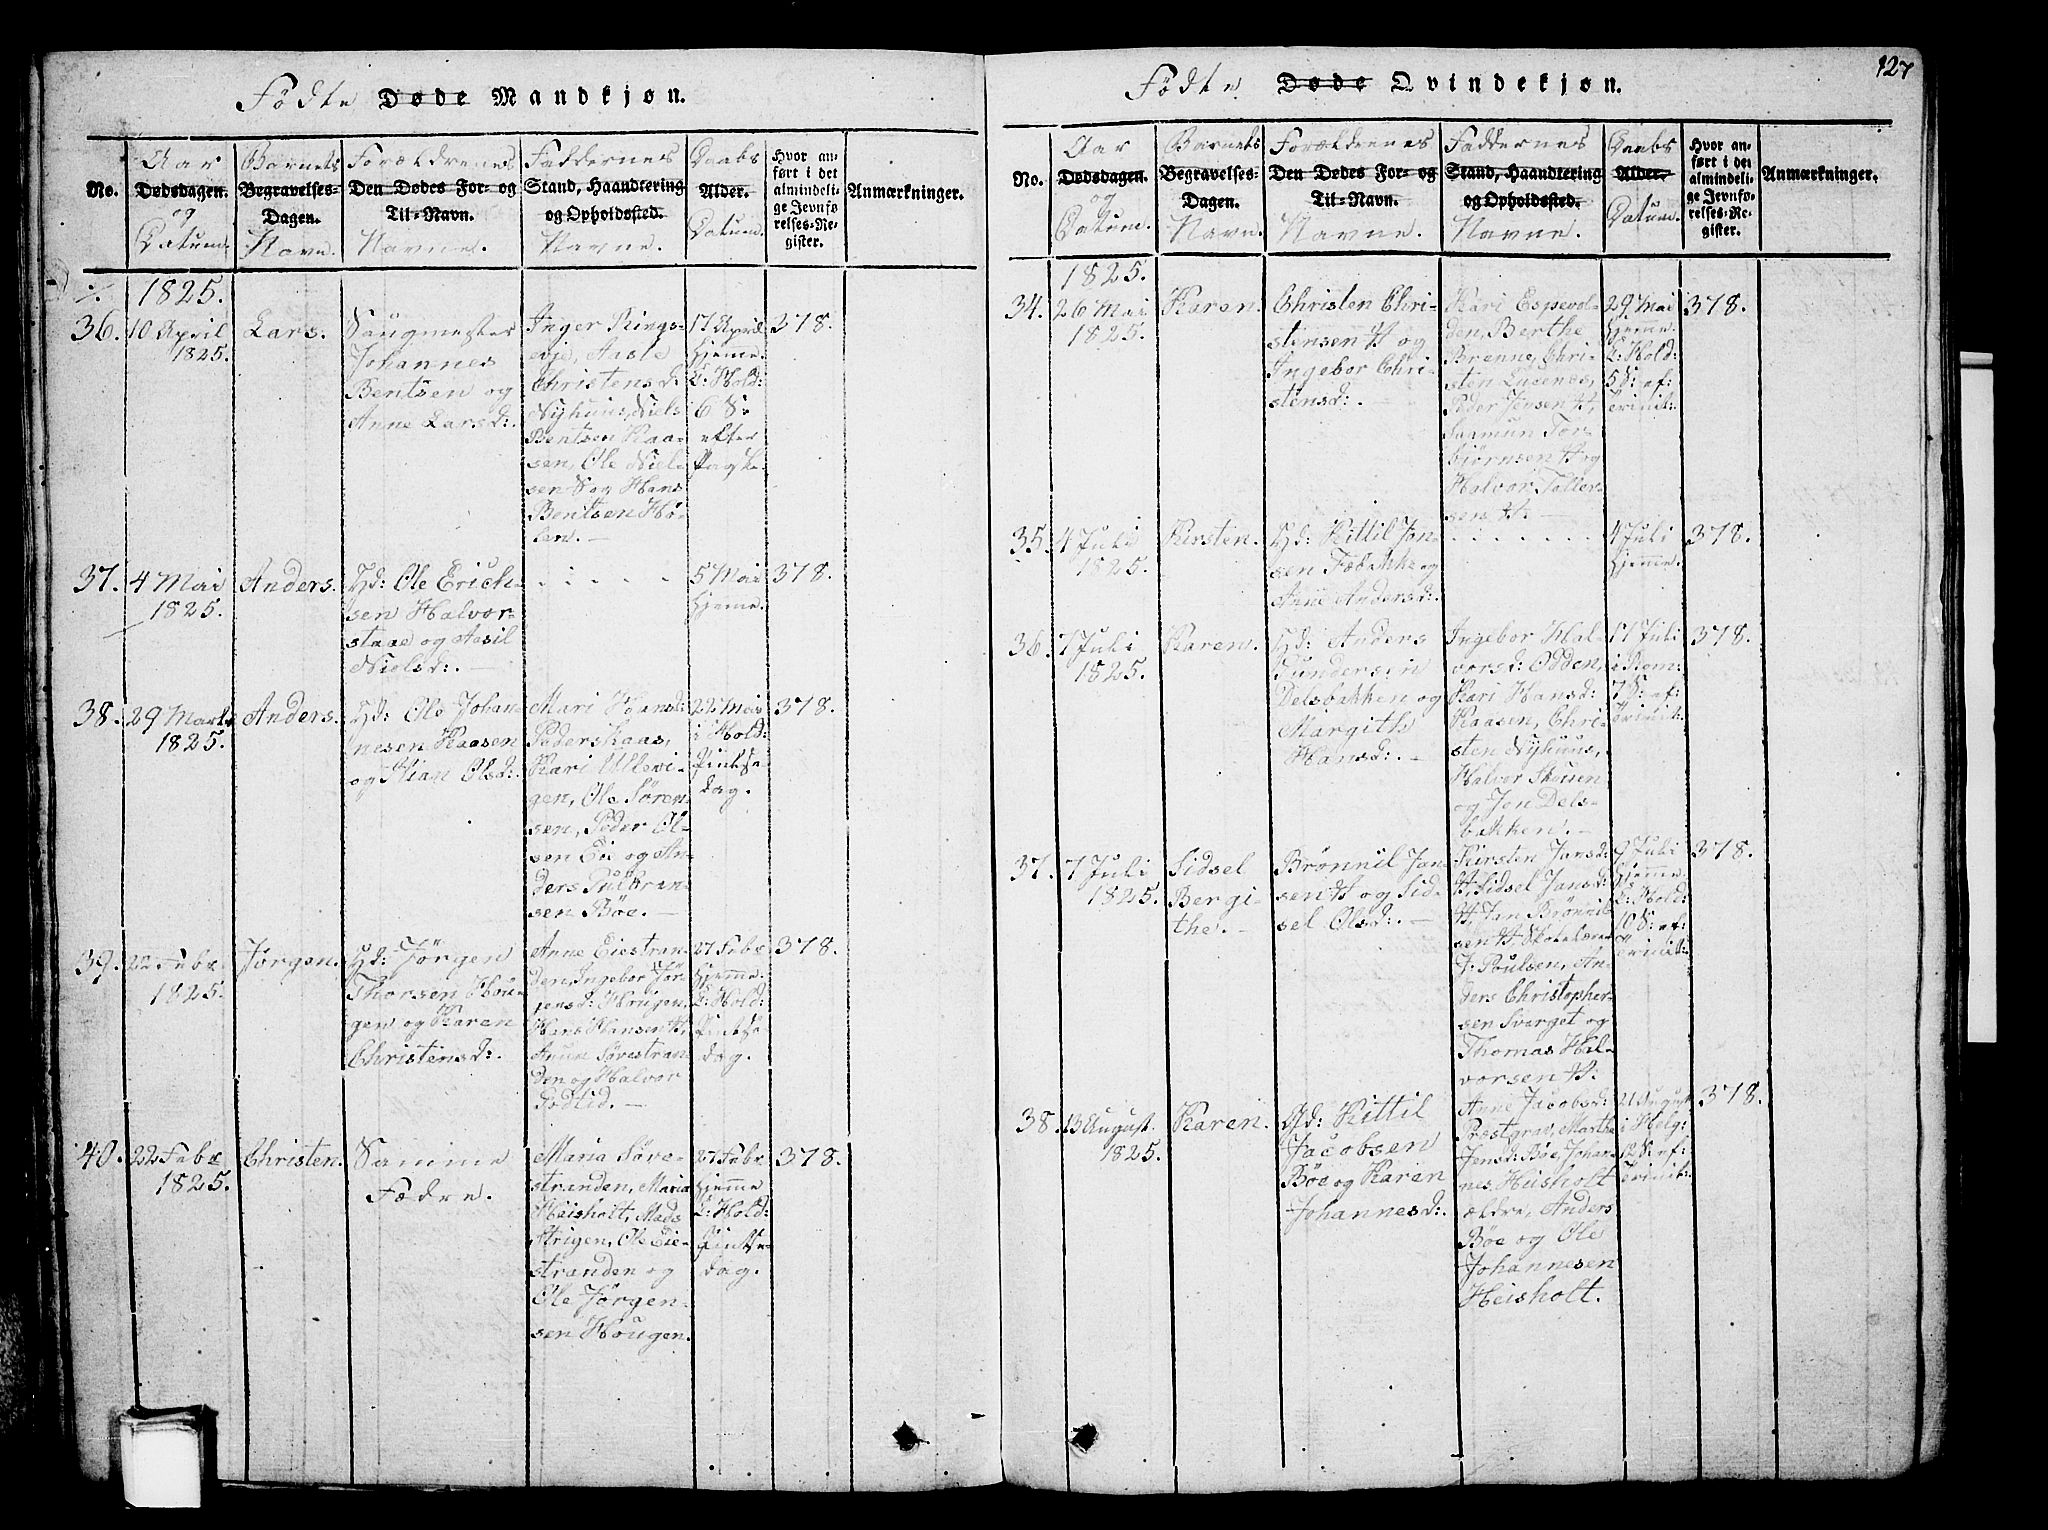 127
Födte Døde Mandkjøn.
No.
Aar
Dødsdagen.
og
Datum.
Barnets
Begravelses-
Dagen.
Navn.
Forældrenes
Den Dødes For- og
Til-Navn.
Navne.
Faddernes
Stand, Haandtering
og Opholdssted.
Navne.
Daabs
Alder.
Datum.
Hvor an-
ført i det
almindeli-
ge Jevnfø-
relses-Re-
gister.
Anmærkninger.
1825.
36.
10 April
1825.
Lars.
Saugmester
Johannes
Bentsen og
Anne Larsd:
Inger Rings-
evje, Aasle
Christensd:
Nyhuus, Niels
Bentsen Kaa-
sen, Ole Niel-
sen S og Hans
Bentsen Ho-
len.
17 April
hjeme.
C: Hold:
6 S.
efter
Paaske.
378.
37.
4 Mai
1825.
Anders.
Gd: Ole Erich-
sen Halvor-
staae og Aasil
Nielsd:
5 Mai
hjeme.
378.
38.
29 Marts
1825.
Anders.
Gd: Ole Johan
nesen Kaasen
og Olsd:
Mari Hansd:
Pederskaas,
Kari Ullevi-
gen, Ole Sören-
sen, Peder Ol-
sen Eie og An-
ders Gulbran-
sen Böe.
22 Mai
i Hold:
Pintse
dag.
378.
39.
22 Febr
1825.
Jörgen.
Gd: Jörgen
Thorsen Hou-
gen og Karen
Christensd:
Anne Eiestran-
den, Ingebor Jör-
gensd: Hougen,
Hans Hansen H,
Anun Sörestran-
den og Halvor
Fodtid.
27 Febr
hjemme.
C: Hold:
Pintse
dag.
378.
40.
22 Febr
1825.
Christen.
Samme
Fædre.
Maria Söre-
stranden, Maria
Heisholt, Mads
Strigen, Ole Eie-
stranden og
Ole Jörgen-
sen Hougen.
27 Febr
hjemme
C: Hold:
Pintse-
dag.
378.
Födte Døde Qvindekjøn.
No.
Aar
Dødsdagen.
og
Datum.
Barnets
Begravelses-
Dagen.
Navn.
Forældrenes
Den Dødes For- og
Til-Navn.
Navne.
Faddernes
Stand, Haandtering
og Opholdssted.
Navne.
Daabs
Alder.
Datum.
Hvor an-
ført i det
almindeli-
ge Jevnfø-
relses-Re-
gister.
Anmærkninger.
1825.
34.
26 Mai
1825.
Karen.
Christen Chri-
stensen H og
Ingebor Chri-
stensd:
Kari Espevol-
den, Berthe
Brenne, Chri-
sten Lucenes,
Peder Jensen H,
Saamun Tor-
biörnsen H og
Halvor Toller-
sen H.
29 Mai
hjeme.
C: Hold:
5 S: ef:
Trinit:
378.
35.
4 Juli
1825.
Kirsten.
Gd: Kittil Jon-
sen Febakke og
Anne Andersd:
4 Juli
hjemme.
378.
36.
7 Juli
1825.
Karen.
Gd: Anders
Gundersen
Delsbakken og
Margith
Hansd:
Ingebor Hal-
vorsd: Odden,
Kari Hansd:
Kaasen, Chri-
sten Nyhuus,
Halvor
og Jon Dels-
bakken.
17 Juli
i Rom:
7 S: ef:
Trinit:
378.
37.
7 Juli
1825.
Sidsel
Bergi-
the.
Brönnil Jan-
sen H og Sid-
sel Olsd:
Kirsten Jansd:
H, Sidsel Jansd:
H, Jan Brönnil-
sen H, Skolelærer
J. Poulsen, An-
ders Christopher-
sen Svarget og
Thomas Hal-
vorsen H.
9 Juli
hjemme.
C: Hold:
10 S: ef:
Trinit:
378.
38.
13 August.
1825.
Karen.
Gd: Kittil
Jacobsen
Böe og Karen
Johannesd:
Anne Jacobsd:
Præstgrav, Marthe
Jensd: Böe, Johan-
nes Heisholt
ældre, Anders
Böe og Ole
Johannesen
Heisholt.
21 August
i Helg:
12 S: ef:
Trinit:
378.